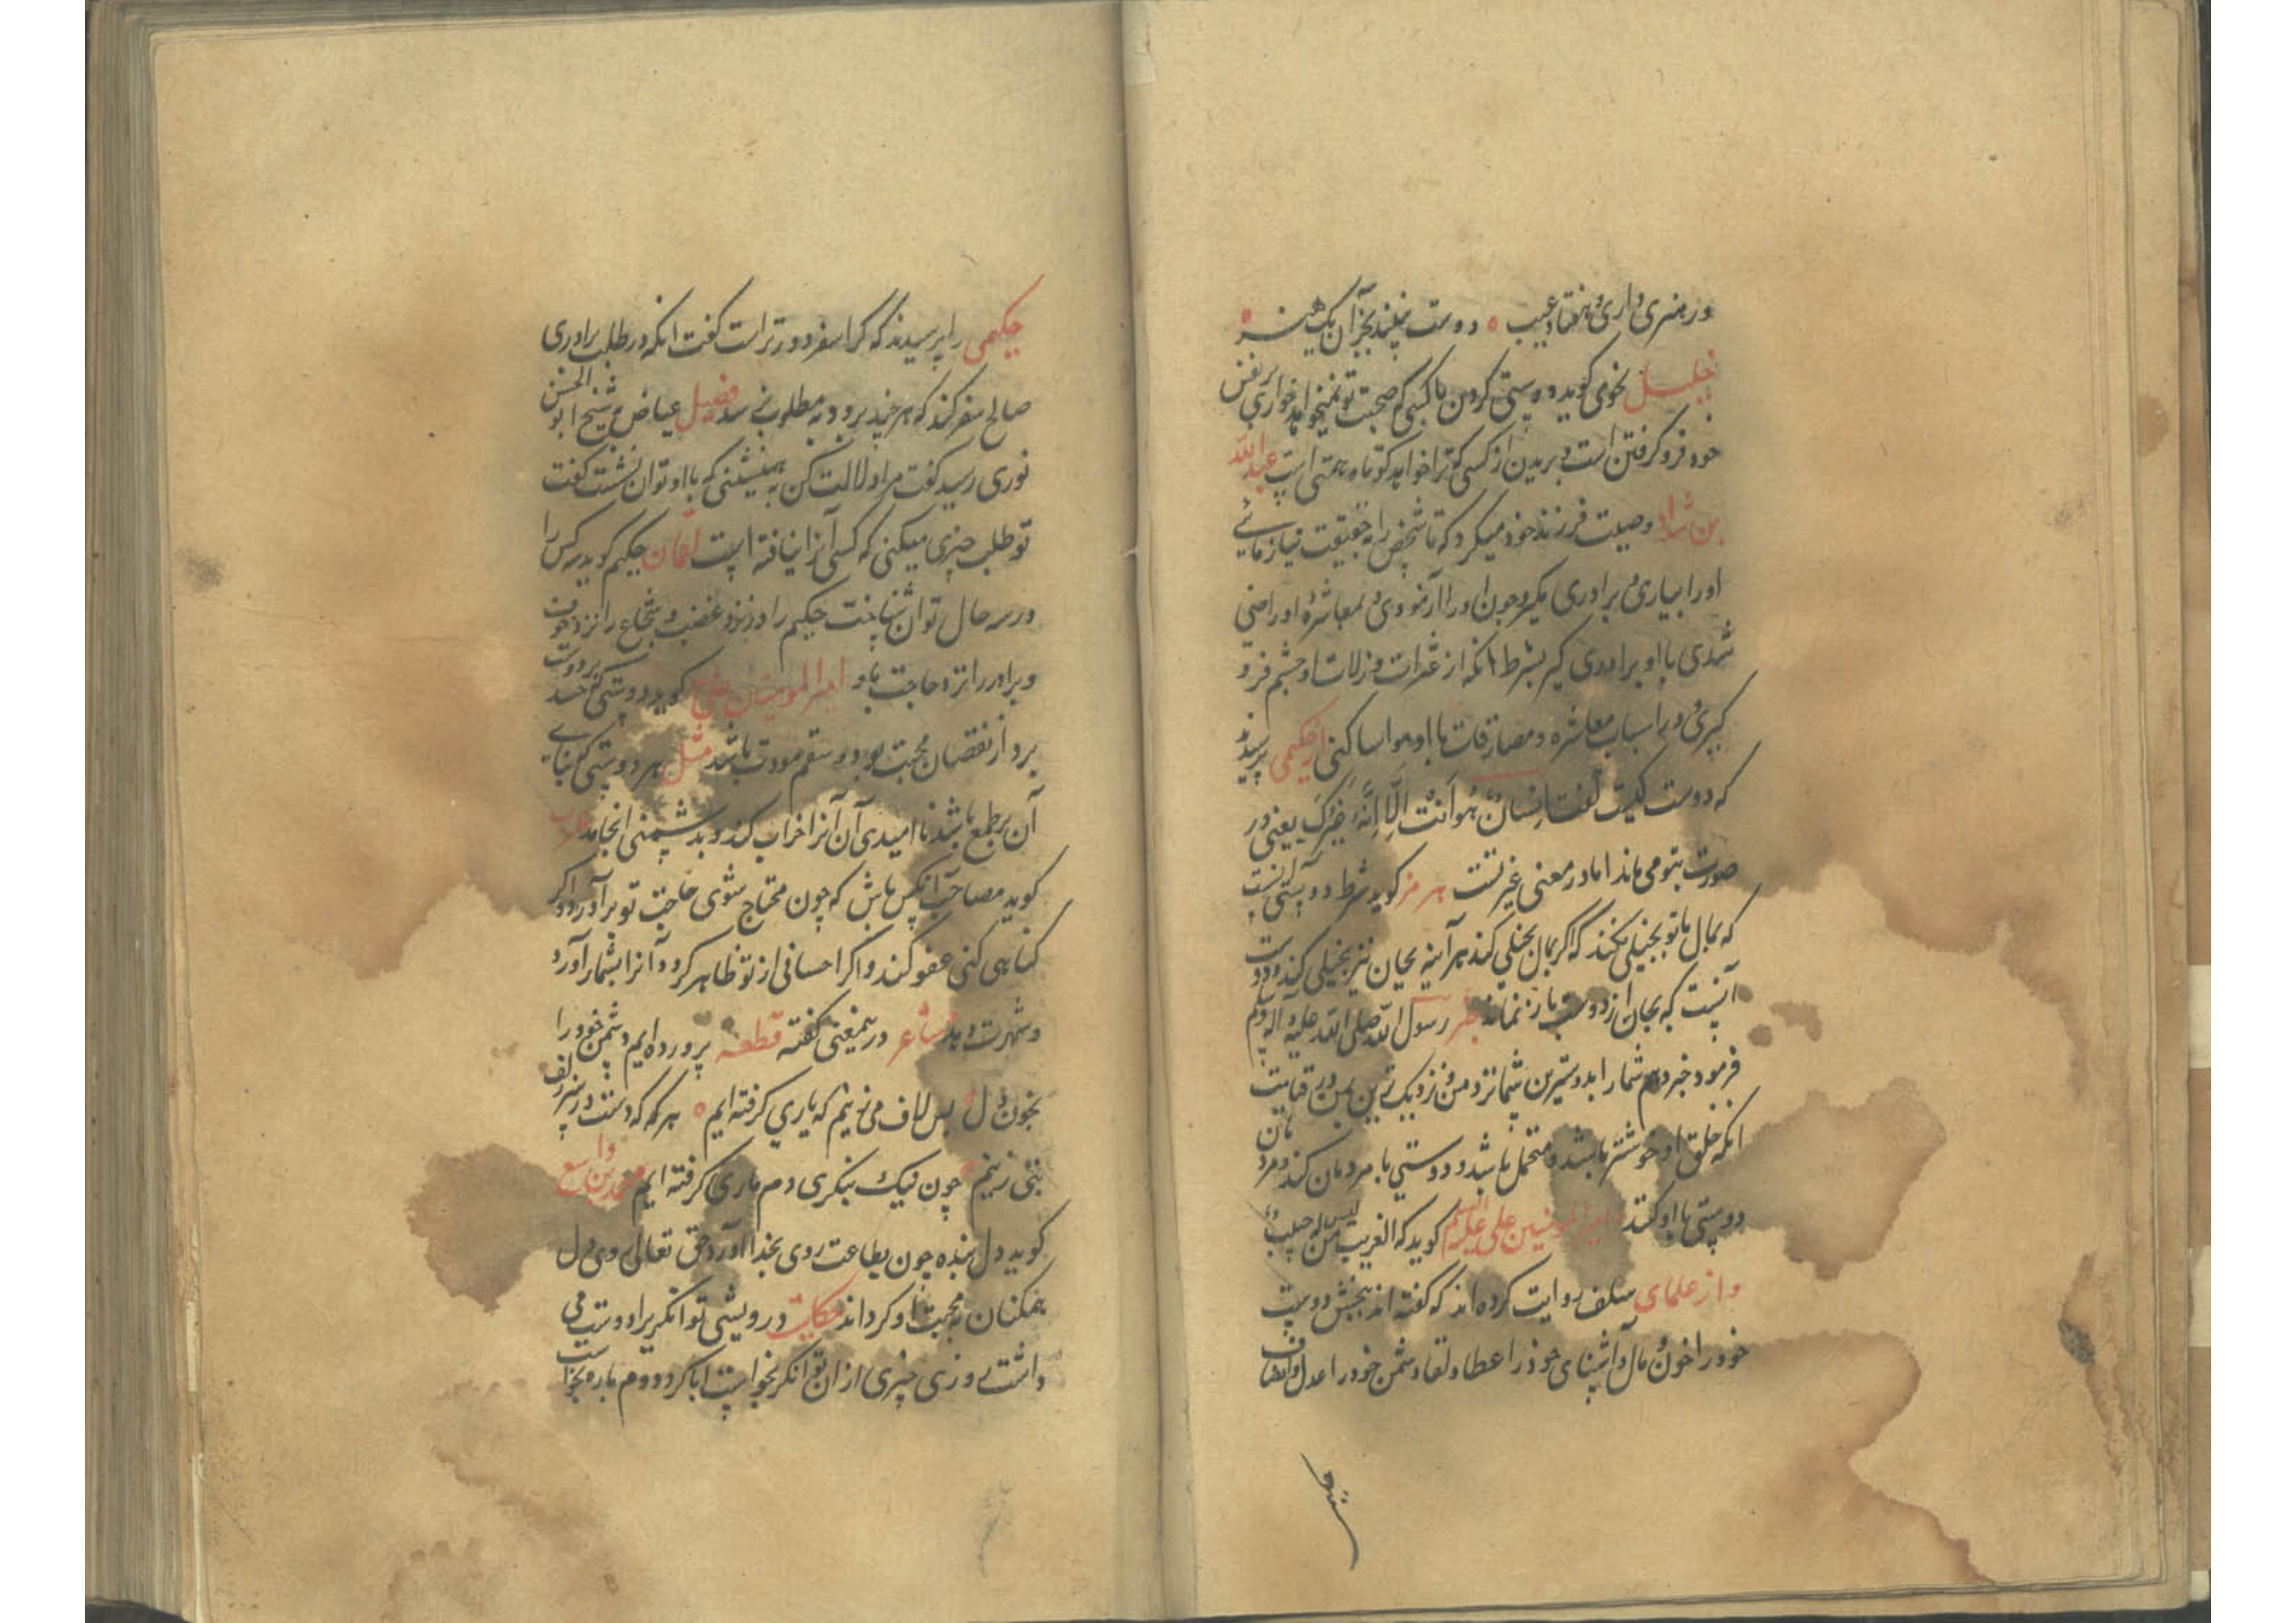 ور هنری داری و هفتاد عیب ° دوست نبیند بجز آن یک هنر °
خلیل نحوی گوید دوستی کردن با کسی که صحبت تو نمیخواهد خواری بر نفس
خود فرو گرفتن است و بریدن از کسی که ترا خواهد کوتاه همتی است عبدالله
بن شداد وصیت فرزند خود میکرد که تا شخص را بحقیقت نیازمائی
او را بیاری و برادری مگیر و چون او را آزمودی و بمعاشره او راضی
شدی با او برادری گیر بشرط انکه از عثرات و زلات او چشم فرو
گیری و در اسباب معاشره و مصادقات با او مواسا کنی از حکیمی پرسیدند
که دوست کیست گفت انسان هو انت الا انه غیرک یعنی در
صورت بتو می ماند اما در معنی غیر تست هرمز گوید شرط دوستی آنست
که بمال با تو بخیلی نکند که اگر بمال بخیلی کند هر آینه بجان نیز بخیلی کند و دوست
آنست که بجان از دوست باز نماند خبر رسول الله صلی الله علیه و آله وسلم
فرمود خبر دهم شما را بدوسترین شما نزد من و نزدیک ترین بمن در قیامت
انکه خلق او خوشتر باشد و متحمل باشد و دوستی با مردمان کند و مردمان
دوستی با او کنند امیر المومنین علی علیه السلام گوید که الغریب من لیس له حبیب
و از علمای سلف روایت کرده اند که گفته اند ببخش دوست
خود را خون و مال و آشنای خود را عطا و لقا و دشمن خود را عدل و انصاف
حکیمی را پرسیدند که کرا سفر دورتر است گفت انکه در طلب برادری
صالح سفر کند که هر چند برود به مطلوب نرسد فضیل عیاض شیخ ابو الحسن
نوری رسید گفت مرا دلالت کن به همنشینی که با او توان نشست گفت
تو طلب چیزی میکنی که کسی آنرا نیافته است لقمان حکیم گوید سه کس را
در سه حال توان شناخت حکیم را در نزد غضب و شجاع را نزد خوف
و برادر را نزد حاجت باو امیر المومنین علی ع گوید دوستی که حسد بر دوست
برد از نقصان محبت بود و سقم مودت باشد مثل هر دوستی که بنای
آن بر طمع باشد ناامیدی آن آنرا خراب کند و بدشمنی انجامد
گوید مصاحب آنکس باش که چون محتاج شوی حاجت تو بر آورد و اگر
گناهی کنی عفو کند و اگر احسانی از تو ظاهر گردد آنرا بشمار آورد
و شهرت دهد شاعر در ینمعنی گفته قطعه پرورده ایم دشمن خود را
بخون دل ° بس لاف می زنیم که یاری گرفته ایم ° هر گه که دست در سر زلف
بتی زنیم ° چون نیک بنگری دم ماری گرفته ایم محمد بن واسع
گوید دل بنده چون بطاعت روی بخدا آورد حق تعالی روی دل
همکنان به محبت او گرداند حکایت درویشی توانگریرا دوست می
داشت روزی چیزی از ان توانگر بخواست ابا کرد دوم باره بخواست